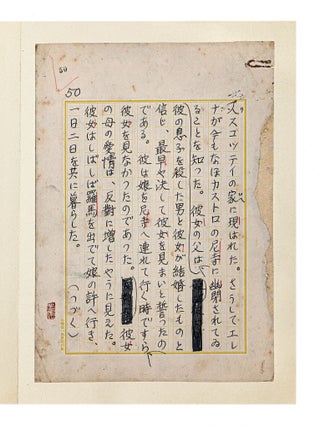 50
50
スコッティの家に現はれた。さうしてエレ
ナが今もなほカストロの尼寺に幽閉されてゐ
ることを知つた。彼女の父は、
彼の息子を殺した男と彼女が結婚したものと
信じ、最早や決して彼女を見まいと誓つたの
である。彼は娘を尼寺へ連れて行く時ですら
彼女を見なかつたのであつた。彼女
の母の愛情は、反対に増したやうに見えた。
彼女はしばしば羅馬を出でて娘の許へ行き、
一日二日を共に暮らした。(つづく)